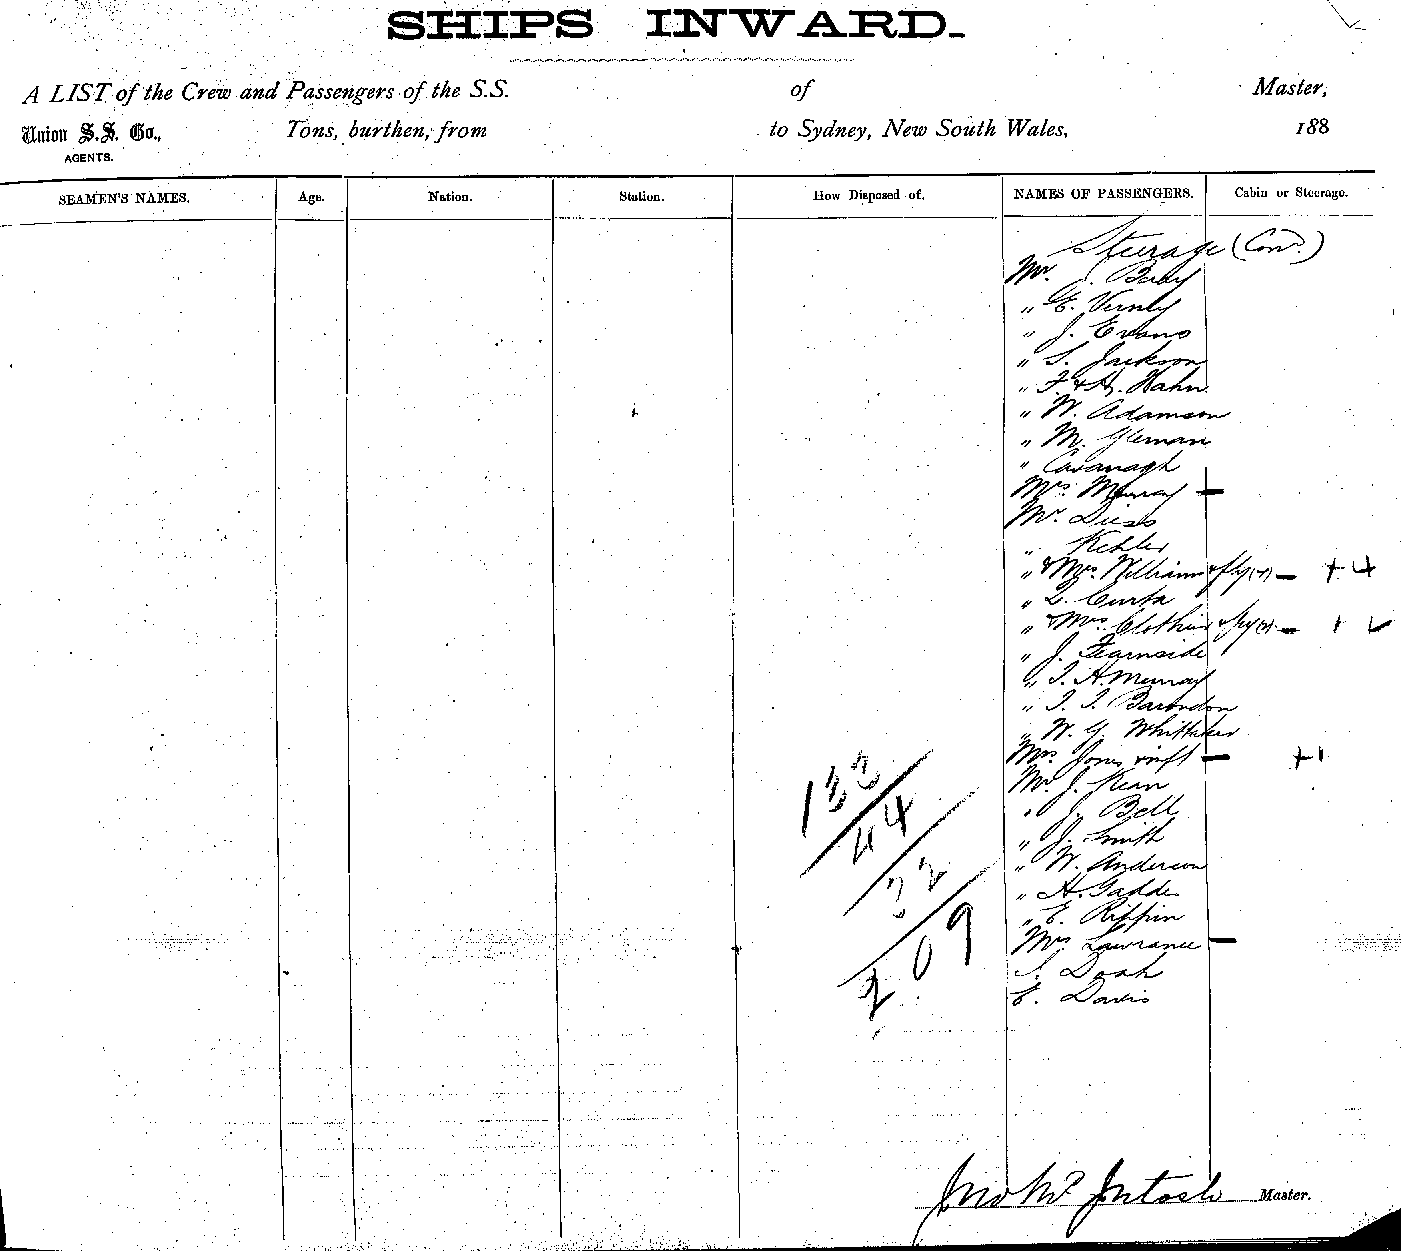 SHIPS INWARD.
A LIST of the Crew and Passengers of the S.S. of Master,
Union S.S. Co., Tons, burthen, from to Sydney, New South Wales, 188
AGENTS.
SEAMEN'S NAMES. Age. Nation. Station. How Disposed of. NAMES OF PASSENGERS. Cabin or Steerage.
Steerage (Cond.)
Mr. J.
" E. Verney
" J. Evans
" S. Jackson
" F. & A. Hahn
" W. Adamson
" M.
" Cavanagh
Mrs. Murray –
Mr. Diess
" Kehler
" & Mrs. Williams & fly (4) – + 4
" L. Curta
" & Mrs. & fly (2) –
" J. Fearnside
" T. A. Murray
" T. J.
" W. G. Whittaker
Mrs Jones & inft – + 1
Mr J. Kean
" J. Bell
" J. Smith
" W. Anderson
" H. Gadde
" E. Rippin
Mrs Lawrance –
S. Doah
E. Davis
133
44
32
209
Jno Mc Intosh Master.